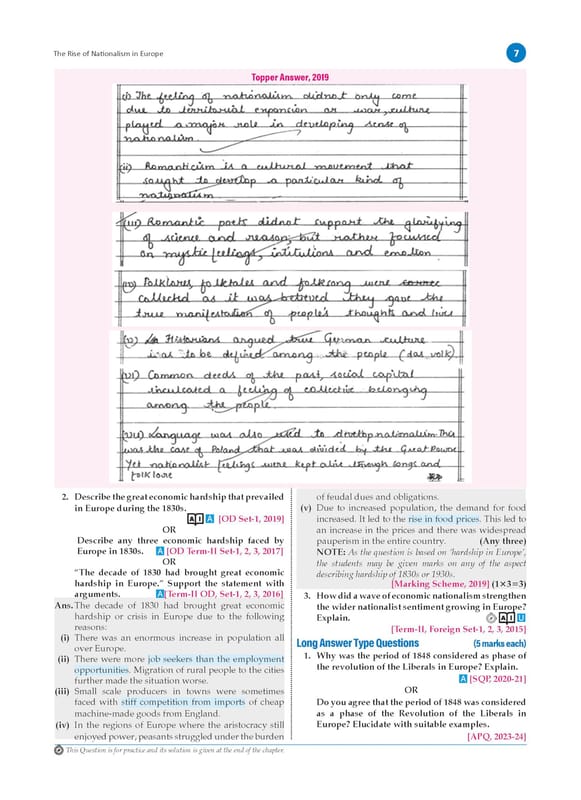 The Rise of Nationalism in Europe
7
Topper Answer, 2019
(i) The feeling of nationalism didnot only come
due to territorial expansion or war, culture
played a major role in developing sense of
nationalism.
(ii) Romanticism is a cultural movement that
sought to develop a particular kind of
nationalism
(iii) Romantic poets didnot support the glorifying
of science and reason, but rather focussed
on mystic feelings, intitutions and emotion
(iv) Folklores, folktales and folksong were
collected as it was believed they gave the
true manifestation of people's thoughts and lives
(v) Historians argued true German culture
was to be defined among the people (das volk)
(vi) Common deeds of the past, social capital
inculcated a feeling of collective belonging
among the people.
(vii) Language was also used to develop nationalism. This
was the case of Poland that was divided by the Great Powers
Yet nationalist feelings were kept alive through songs and
folklore
2. Describe the great economic hardship that prevailed
in Europe during the 1830s.
A [OD Set-1, 2019]
OR
Describe any three economic hardship faced by
Europe in 1830s. A [OD Term-II Set-1, 2, 3, 2017]
OR
"The decade of 1830 had brought great economic
hardship in Europe." Support the statement with
arguments. A [Term-II OD, Set-1, 2, 3, 2016]
Ans. The decade of 1830 had brought great economic
hardship or crisis in Europe due to the following
reasons:
(i) There was an enormous increase in population all
over Europe.
(ii) There were more job seekers than the employment
opportunities. Migration of rural people to the cities
further made the situation worse.
(iii) Small scale producers in towns were sometimes
faced with stiff competition from imports of cheap
machine-made goods from England.
(iv) In the regions of Europe where the aristocracy still
enjoyed power, peasants struggled under the burden
of feudal dues and obligations.
(v) Due to increased population, the demand for food
increased. It led to the rise in food prices. This led to
an increase in the prices and there was widespread
pauperism in the entire country. (Any three)
NOTE: As the question is based on 'hardship in Europe',
the students may be given marks on any of the aspect
describing hardship of 1830s or 1930s.
[Marking Scheme, 2019] (1×3=3)
3. How did a wave of economic nationalism strengthen
the wider nationalist sentiment growing in Europe?
Explain. U
[Term-II, Foreign Set-1, 2, 3, 2015]
Long Answer Type Questions (5 marks each)
1. Why was the period of 1848 considered as phase of
the revolution of the Liberals in Europe? Explain.
A [SQP, 2020-21]
OR
Do you agree that the period of 1848 was considered
as a phase of the Revolution of the Liberals in
Europe? Elucidate with suitable examples.
[APQ, 2023-24]
This Question is for practice and its solution is given at the end of the chapter.